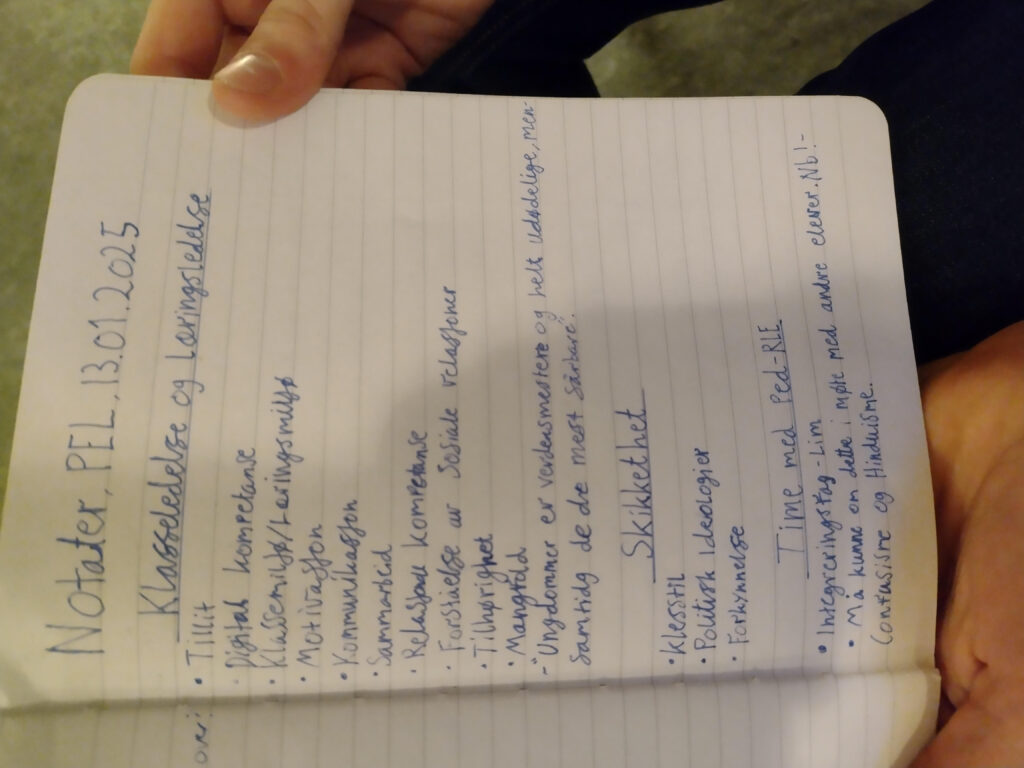 Notater, PEL, 13.01.2025
Klasseledelse og Læringsledelse
• Tillit
• Digital kompetanse
• Klassemiljø/Læringsmiljø
• Motivasjon
• Kommunikasjon
• Sammarbeid
• Relasjons kompetanse
• Forståelse av Sosiale relasjoner
• Tilhørighet
• Mangfold
-"Ungdommer er verdensmestere og helt udødelige, men-
samtidig de de mest sårbare.
Skikkethet
• Klesstil
• Politisk Ideologier
• Forkynnelse
Time med Ped-RLE
• Integreringsfag - Lim
• Må kunne om dette i møte med andre elever. Nb!-
Confusisme og Hinduisme.
over: